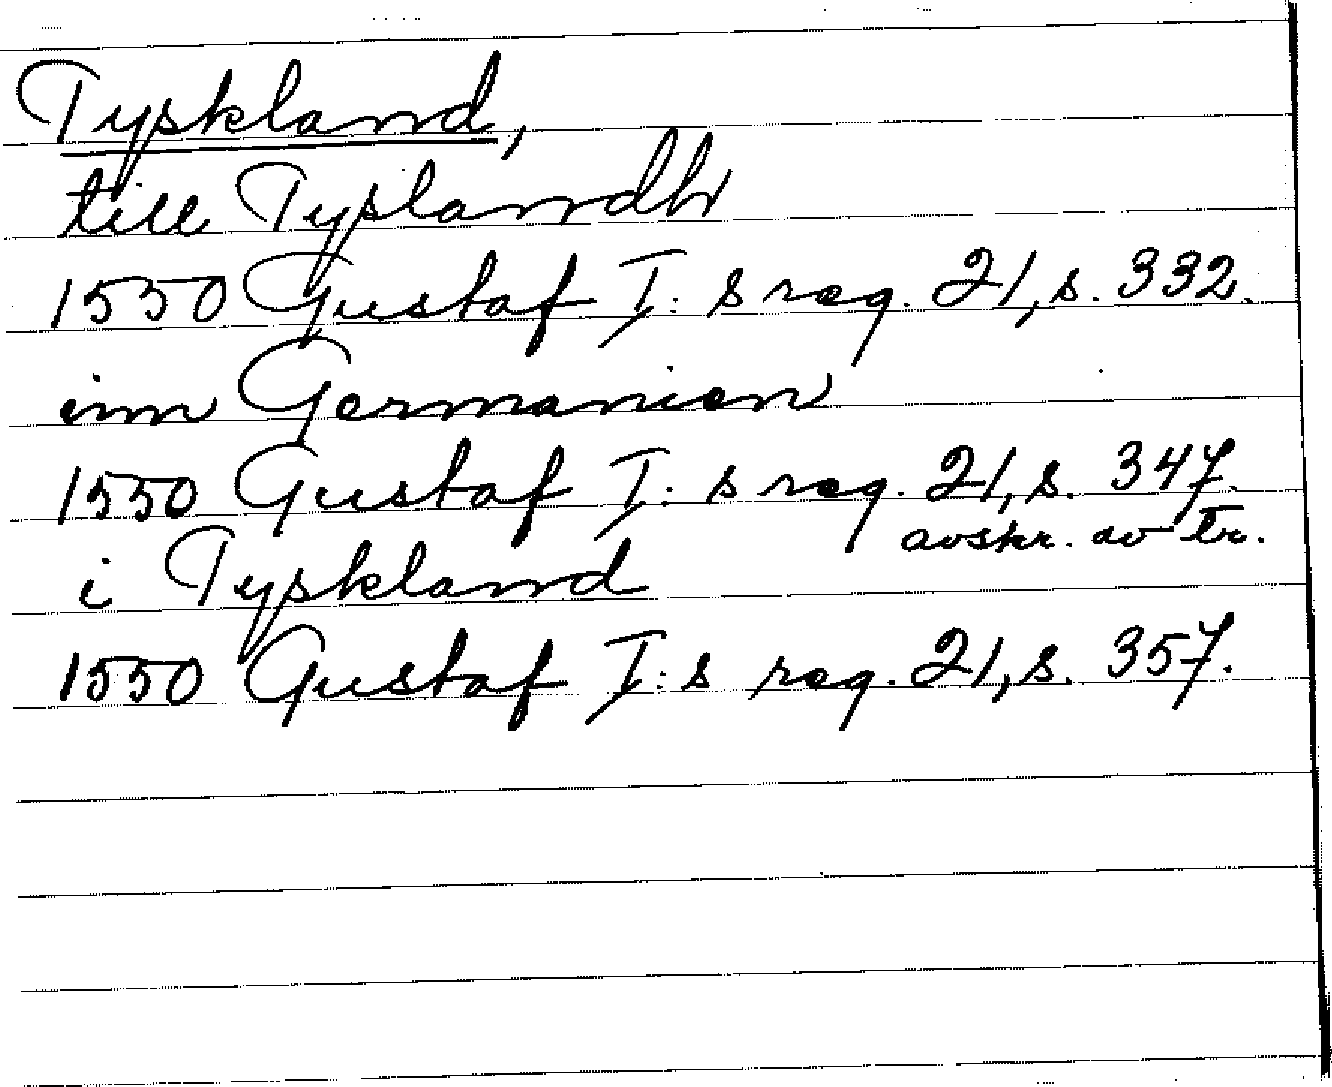 Tyskland,
till Tyslandh
1550 Gustaf I:s reg. 21, s. 332.
im Germanien
1550 Gustaf I:s reg. 21, s. 347.
avskr. av tr.
i Tyskland
1550 Gustaf I:s reg. 21, s. 357.